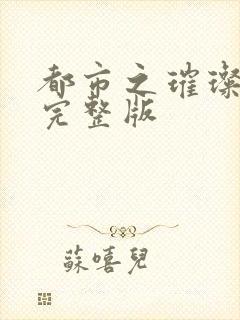 都市之璀璨
完整版
蘇嘻兒